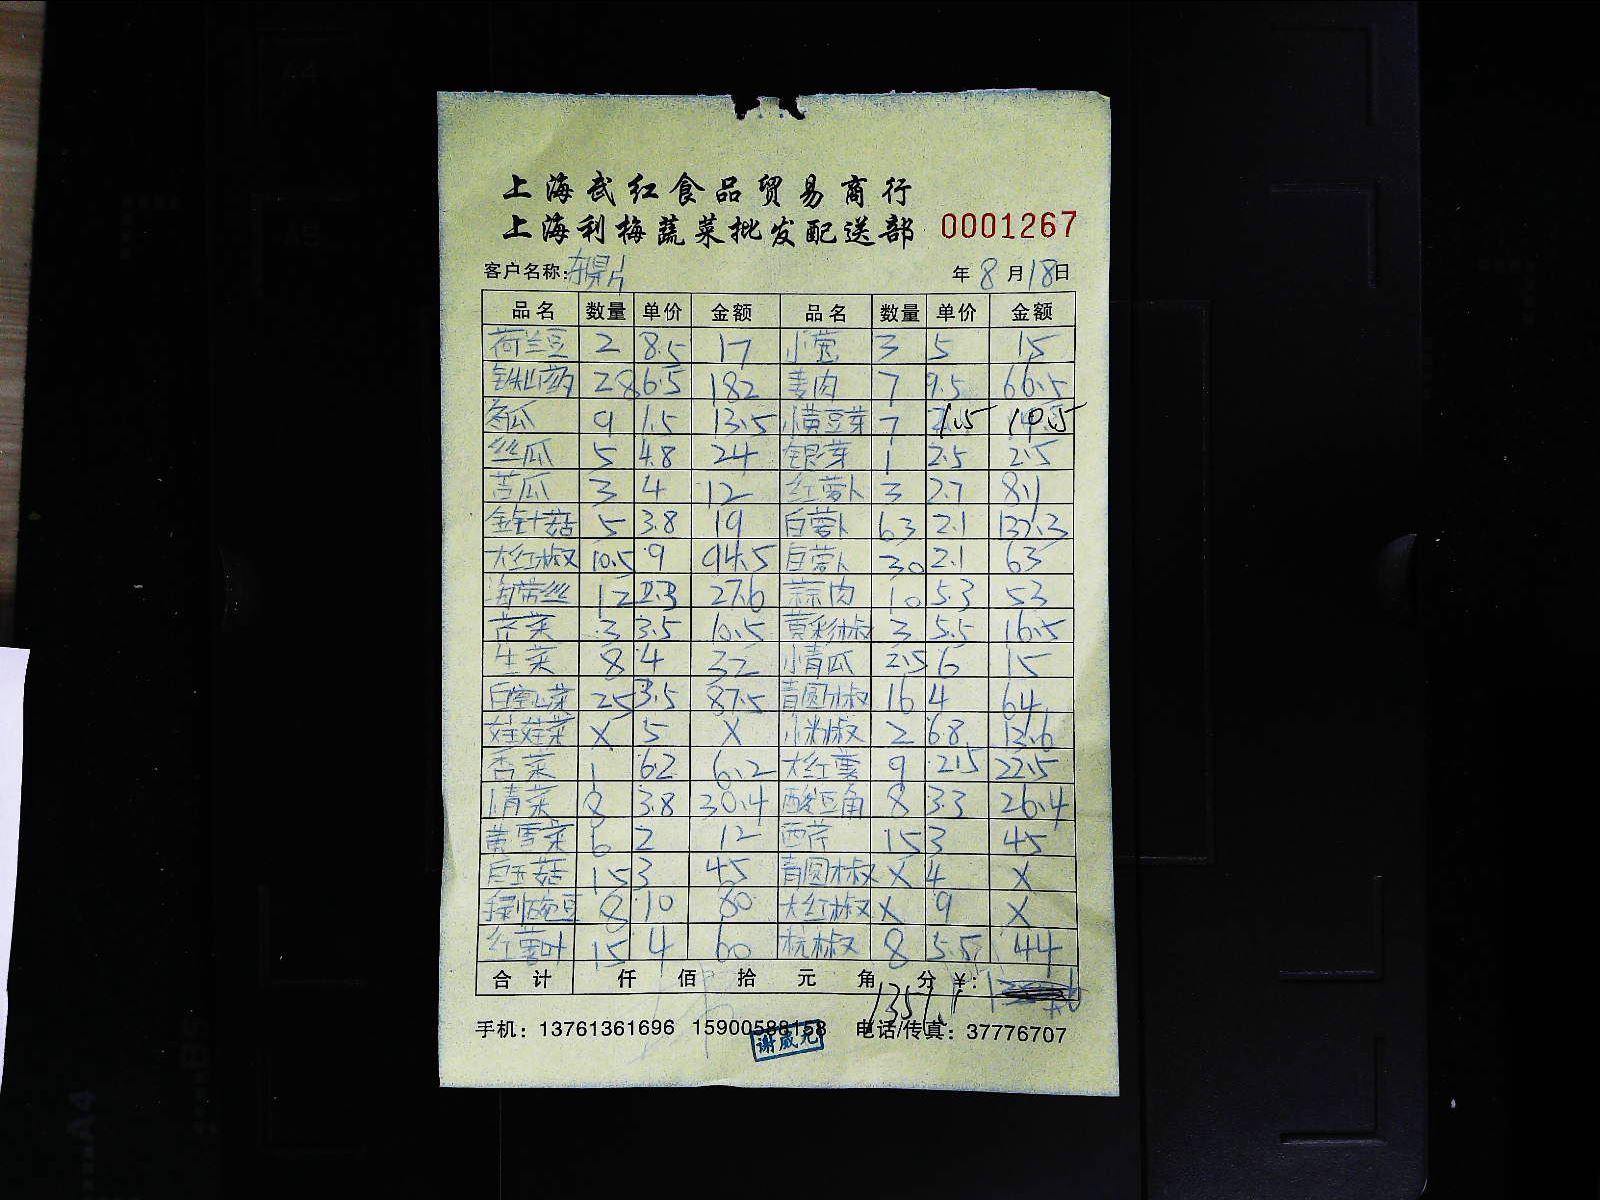 上海武红食品贸易商行
上海利梅蔬菜批发配送部 0001267
客户名称: 年 8 月 18 日
品名 数量 单价 金额 品名 数量 单价 金额
荷兰豆 2 8.5 17 小葱 3 5 15
铁山药 28 6.5 182 姜肉 7 9.5 66.5
冬瓜 9 1.5 13.5 小黄豆芽 7 1.5 10.5
丝瓜 5 4.8 24 银芽 1 2.5 2.5
苦瓜 3 4 12 红萝卜 3 2.7 8.1
金针菇 5 3.8 19 白萝卜 63 2.1 132.3
大红椒 10.5 9 94.5 白萝卜 30 2.1 63
海带丝 12 2.3 27.6 蒜肉 10 5.3 53
芹菜 3 3.5 10.5 黄彩椒 3 5.5 16.5
生菜 8 4 32 小青瓜 2.5 6 15
白空心菜 25 3.5 87.5 青圆椒 16 4 64
娃娃菜 X 5 X 小米椒 2 6.8 13.6
香菜 1 6.2 6.2 大红薯 9 2.5 22.5
小青菜 8 3.8 30.4 酸豆角 8 3.3 26.4
黄雪菜 6 2 12 西芹 15 3 45
白玉菇 15 3 45 青圆椒 X 4 X
8 10 80 大红椒 X 9 X
红薯叶 15 4 60 杭椒 8 5.5 44
合计 仟 佰 拾 元 角 分 ¥:
1351.1
手机: 13761361696 15900588158 电话/传真: 37776707
谢威元